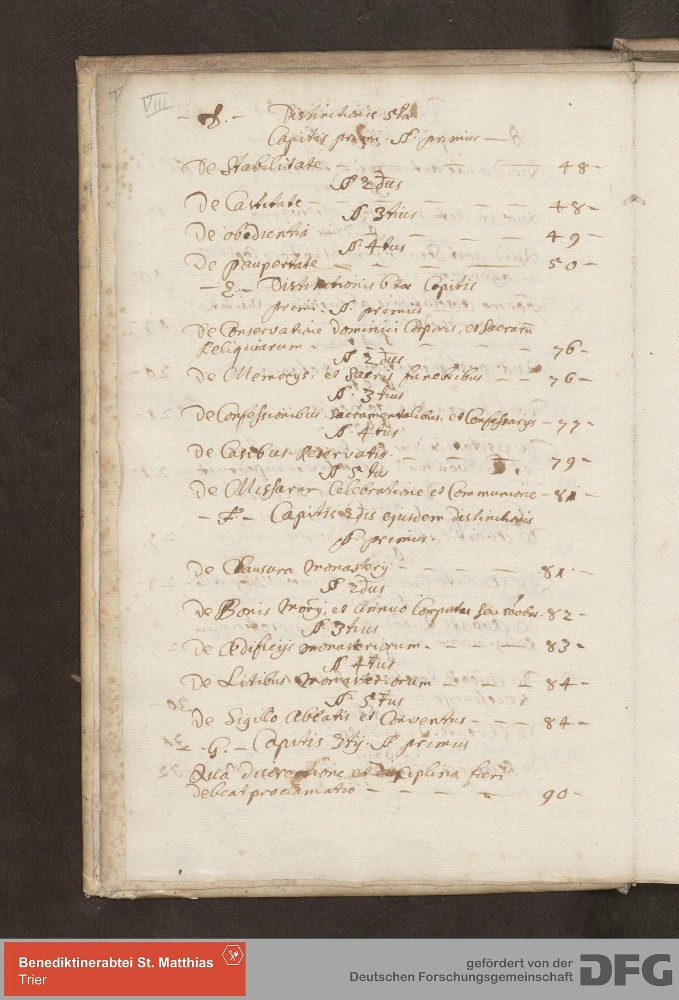 VIII
Distinctionis 5tæ
Capitis primi. §. primus
De Stabilitate - 48 -
§ 2dus
De Castitate - 48 -
§. 3tius
De obedientia - 49 -
§. 4tus
De paupertate - 50 -
Distinctionis 6tæ Capitis
primi. §. primus
De Conservatione Dominici Corporis, et Sacrarū
Reliquiarum - 76 -
§ 2dus
De Memorijs, et Sacris funebribus - 76 -
§. 3tius
De Confessionibus Sacramentalibus, et Confessarijs - 77 -
§. 4tus
De Casibus Reservatis - 79 -
§ 5tus
De Missarum Celebratione et Communione - 81 -
- F. - Capitis 2dis ejusdem distinctionis
§. primus.
De Clausura monasterij - 81 -
§ 2dus
De Bonis Mōrij, et annuo Computu seu - 82 -
§. 3tius
De Ædificijs monasteriorum - 83 -
§ 4tus
De Litibus monasteriorum - 84 -
§. 5tus
De Sigillo Abbatis et Conventus - 84 -
- G. - Capitis 3tij. §. primus
Quâ discretione et disciplina fieri
debeat proclamatio - 90 -
Benediktinerabtei St. Matthias
Trier
gefördert von der
Deutschen Forschungsgemeinschaft
DFG